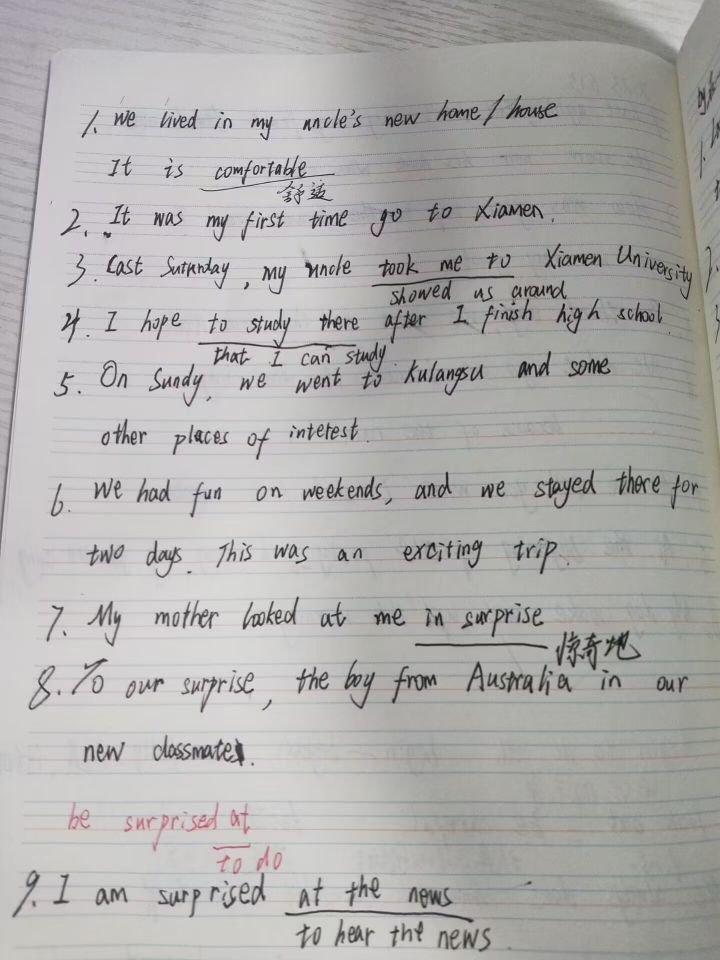 1. We lived in my uncle's new home / house
It is comfortable
舒适
2. It was my first time go to Xiamen.
3. Last Saturday, my uncle took me to Xiamen University
showed us around
4. I hope to study there after I finish high school.
that I can study
5. On Sundy, we went to Kulangsu and some
other places of interest.
6. We had fun on weekends, and we stayed there for
two days. This was an exciting trip.
7. My mother looked at me in surprise
惊奇地
8. To our surprise, the boy from Australia in our
new classmate.
be surprised at
to do
9. I am surprised at the news
to hear the news.